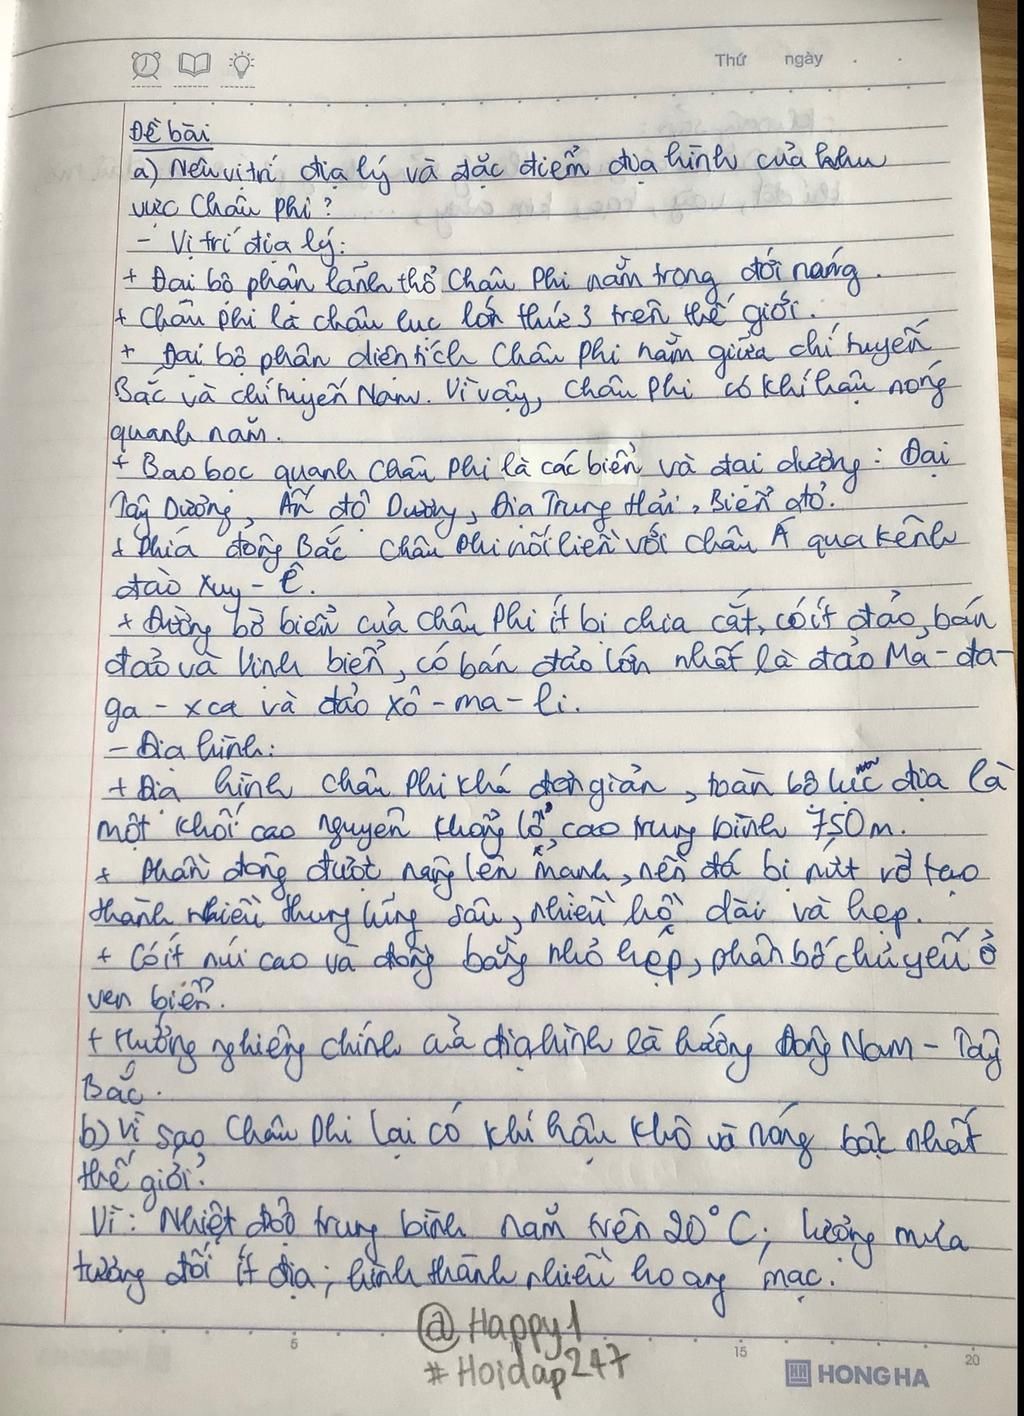 Thứ ngày
Đề bài
a) Nêu vị trí địa lý và đặc điểm địa hình của khu
vực Châu Phi?
- Vị trí địa lý:
+ Đại bộ phận lãnh thổ Châu Phi nằm trong đới nóng.
+ Châu Phi là châu lục lớn thứ 3 trên thế giới.
+ Đại bộ phận diện tích Châu Phi nằm giữa chí tuyến
Bắc và chí tuyến Nam. Vì vậy, Châu Phi có khí hậu nóng
quanh năm.
+ Bao bọc quanh Châu Phi là các biển và đại dương: Đại
Tây Dương, Ấn độ Dương, Địa Trung Hải, Biển đỏ.
+ Phía đông Bắc Châu Phi nối liền với châu Á qua kênh
đào Xuy-ê.
+ Đường bờ biển của Châu Phi ít bị chia cắt, có ít đảo, bán
đảo và vịnh biển, có bán đảo lớn nhất là đảo Ma-đa-
ga-xca và đảo Xô-ma-li.
- Địa hình:
+ Địa hình Châu Phi khá đơn giản, toàn bộ lục địa là
một khối cao nguyên khổng lồ, cao trung bình 750m.
+ Phần đông được nâng lên mạnh, nền đá bị nứt vỡ tạo
thành nhiều thung lũng sâu, nhiều hồ dài và hẹp.
+ Có ít núi cao và đồng bằng nhỏ hẹp, phân bố chủ yếu ở
ven biển.
+ Hướng nghiêng chính của địa hình là hướng Đông Nam - Tây
Bắc.
b) Vì sao Châu Phi lại có khí hậu khô và nóng bậc nhất
thế giới?
Vì: Nhiệt độ trung bình năm trên 20°C; lượng mưa
tương đối ít địa; hình thành nhiều hoang mạc.
@Happy1
#Hoidap247
5 15 20
HONG HA